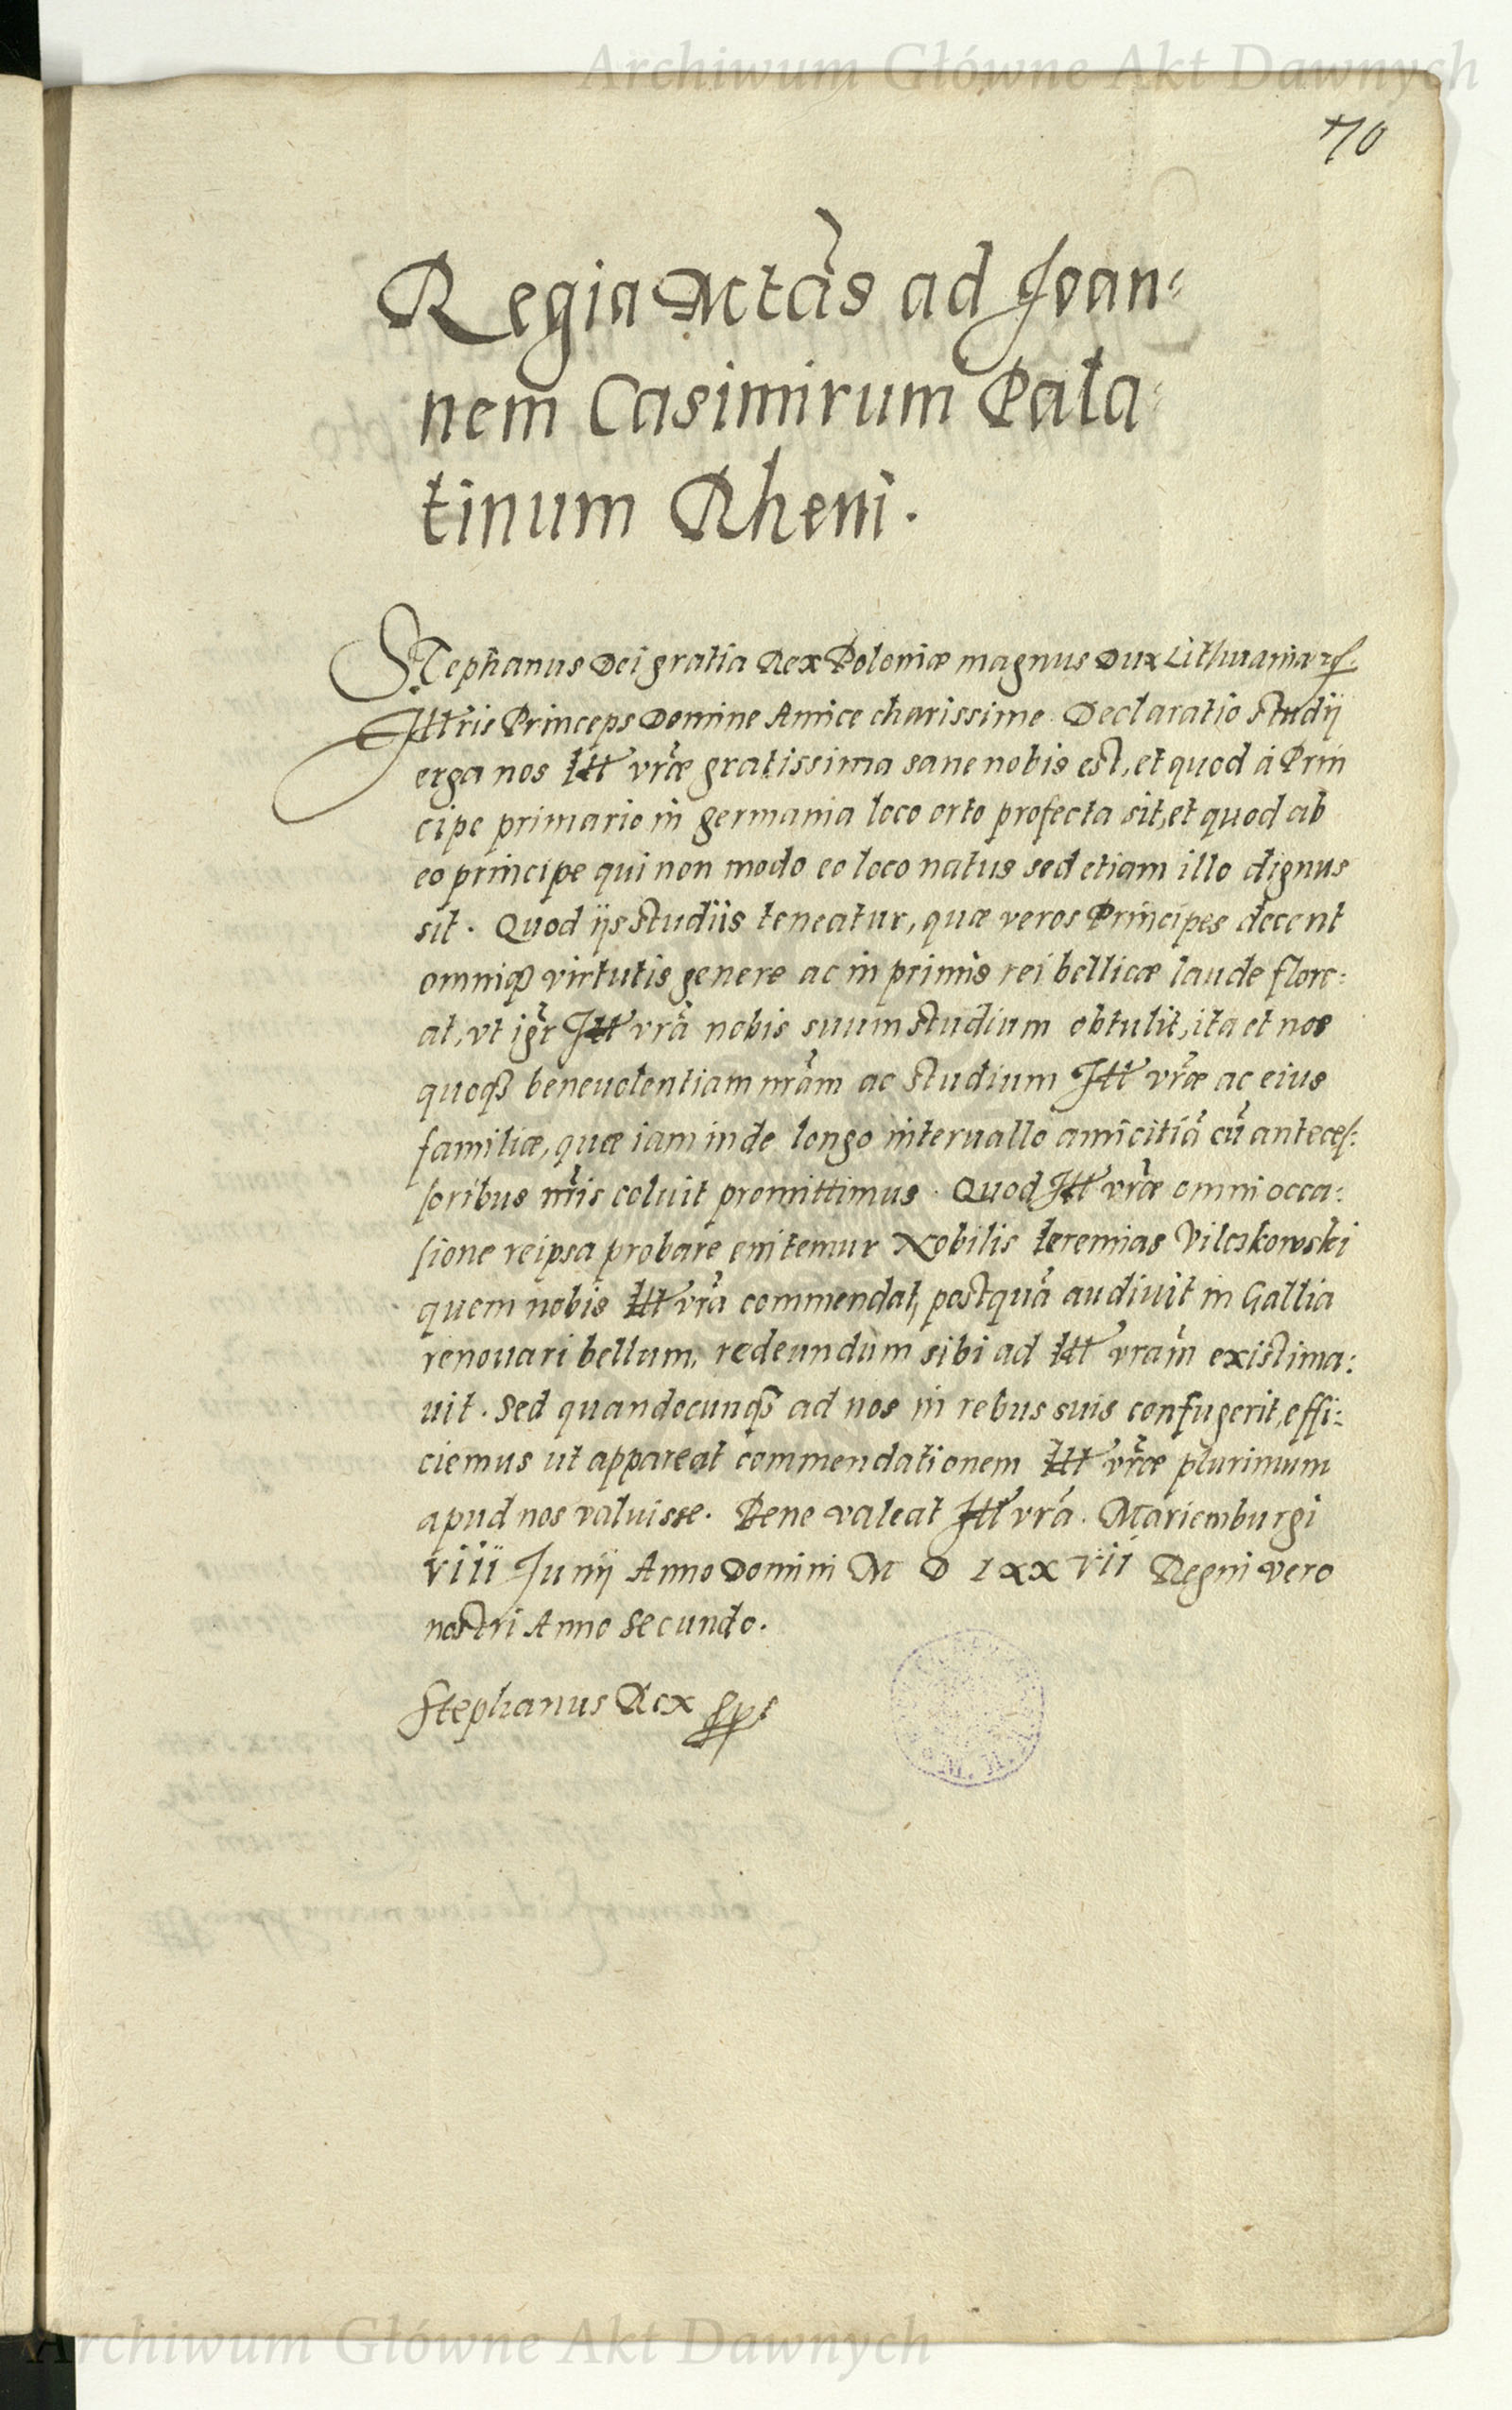 Archiwum Główne Akt Dawnych
70
Regia Mtàs ad Joan⸗
nem Casimirum Pala⸗
tinum Rheni.
Stephanus Dei gratia Rex Poloniæ magnus Dux Lithuaniæ
Illris Princeps Domine Amice charissime. Declaratio studij
erga nos Ill vræ gratissima sane nobis est, et quod à Prin
cipe primario in germania loco orto profecta sit, et quod ab
eo principe qui non modo eo loco natus sed etiam illo dignus
sit. Quod ijs studiis teneatur, quæ veros Principes decent
omniq virtutis genere ac in primis rei bellicæ laude flore⸗
at, vt igr Ill vrà nobis suum studium obtulit, ita et nos
quoq beneuolentiam nràm ac studium Ill vræ ac eius
familiæ, quæ iam inde longo interuallo amicitià cū anteceſ⸗
ſoribus nris coluit promittimus. Quod Ill vræ omni occa⸗
ſione reipsa probare enitemur Nobilis Ieremias Vilczkowski
quem nobis Ill vrà commendat, postquà audiuit in Gallia
renouari bellum, redeundum sibi ad Ill vràm existima⸗
uit. Sed quandocunq ad nos in rebus suis confugerit, effi⸗
ciemus ut appareat commendationem Ill vræ plurimum
apud nos valuisse. Bene valeat Ill vrà. Mariemburgi
viii Junij Anno Domini M D lxxvii Regni vero
nostri Anno secundo.
Stephanus Rex
Archiwum Główne Akt Dawnych